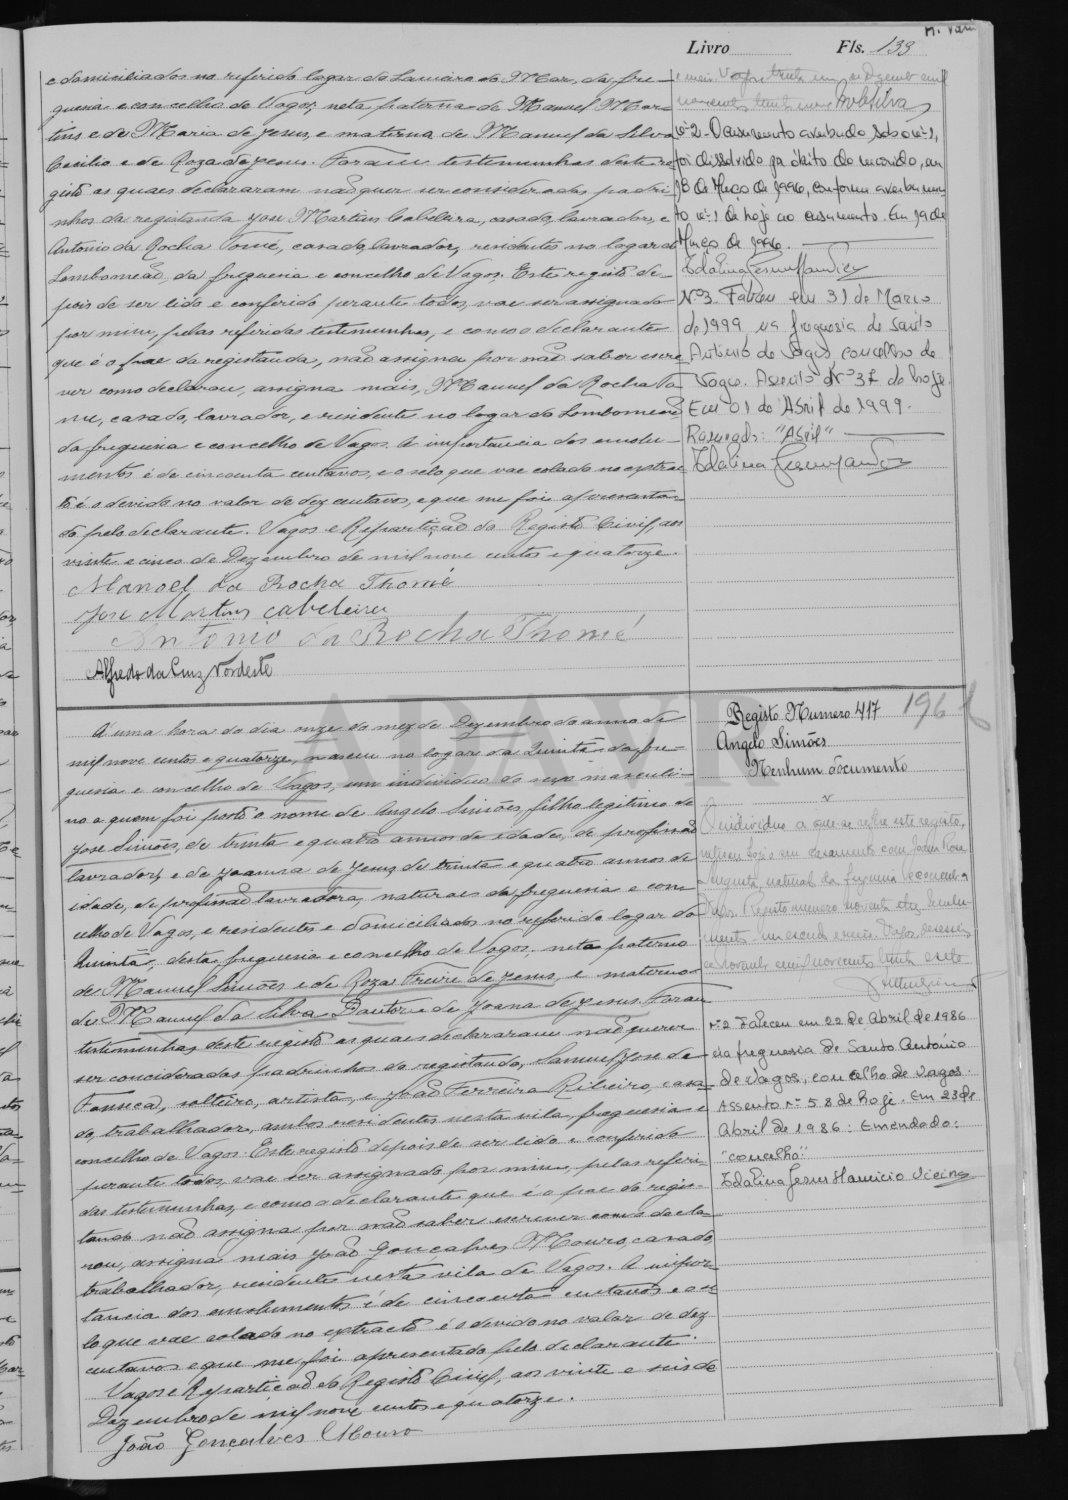 Livro Fls. 133
e domiciliados no referido logar do Lameiro do Mar, da fre-
guesia e concelho de Vagos, neta paterna de Manuel Mar-
tins e de Maria de Jesus, e materna de Manuel da Silva
e de Roza de Jesus. Foram testemunhas deste re-
gisto as quaes declararam não quer ser consideradas padri-
nhos da registanda José Martins Cabeleira, casado, lavrador, e
Antonio da Rocha Tomé, casado, lavrador, residentes no logar de
Lombomeão, da freguesia e concelho de Vagos. Este registo de-
pois de ser lido e conferido perante todos, vae ser assignado
por mim, pelas referidas testemunhas, e como o declarante
que é o pae da registanda, não assigna por não saber escre
ver como declarou, assigna mais, Manuel da Rocha To
me, casado, lavrador, e residente no logar do Lombomeão
da freguesia e concelho de Vagos. A importancia dos emolu-
mentos é de cincoenta centavos, e o selo que vae colado no extrac
to é o devido no valor de dez centavos, e que me foi apresenta-
do pelo declarante. Vagos e Repartição do Registo Civil, aos
vinte e cinco de Dezembro de mil nove centos e quatorze.
Manoel da Rocha Thomé
José Martins Cabeleira
Antonio da Rocha Thomé
Alfredo da Cruz Nordeste
nº 2 - O casamento averbado sob o nº 1,
foi dissolvido por óbito do marido, em
18 de Março de 1996, conforme averbamen
to nº 1 de hoje ao casamento. Em 19 de
Março de 1996.
Nº 3. Faleceu em 31 de Março
de 1999 na freguesia de Santo
António de Vagos concelho de
Vagos. Assento Nº 37 de hoje.
Em 01 de Abril de 1999.
"Abril"
Á uma hora do dia onze do mez de Dezembro do anno de
mil nove centos e quatorze, nasceu no logar da Quintã da fre-
guesia e concelho de Vagos, um individuo do sexo masculi-
no a quem foi posto o nome de Angelo Simões, filho legitimo de
José Simões, de trinta e quatro annos de idade, de profissão
lavrador, e de Joanna de Jesus de trinta e quatro annos de
idade, de profissão lavradora, naturaes da freguesia e con-
celho de Vagos, e residentes e domiciliados no referido logar da
Quintã, desta freguesia e concelho de Vagos, neto paterno
de Manuel Simões e de Roza Freire de Jesus, e materno
de Manuel da Silva e de Joana de Jesus. Foram
testemunhas deste registo as quaes declararam não querer
ser concideradas padrinhos do registando, Samuel José da
Fonseca, solteiro, artista, e João Ferreira Ribeiro, casa-
do, trabalhador, ambos residentes nesta vila, freguesia e
concelho de Vagos. Este registo depois de ser lido e conferido
perante todos, vae ser assignado por mim, pelas referi-
das testemunhas, e como o declarante que é o pae do regis-
tando não assigna por não saber escrever como decla-
rou, assigna mais João Gonçalves Mouro, casado,
trabalhador, residente nesta vila de Vagos. A impor-
tancia dos emolumentos é de cincoenta centavos e o se
lo que vae colado no extracto é o devido no valor de dez
centavos e que me foi apresentado pelo declarante.
Vagos e Repartição do Registo Civil, aos vinte e seis de
Dezembro de mil nove centos e quatorze.
João Gonçalves Mouro
Registo Numero 417
Angelo Simões
Nenhum documento
196
O individuo a que se refere este registo,
nº 2 Faleceu em 22 de Abril de 1986
na freguesia de Santo António
de Vagos, concelho de Vagos.
Assento nº 58 de hoje. Em 23 de
Abril de 1986: Emendado:
"concelho"
APAVR